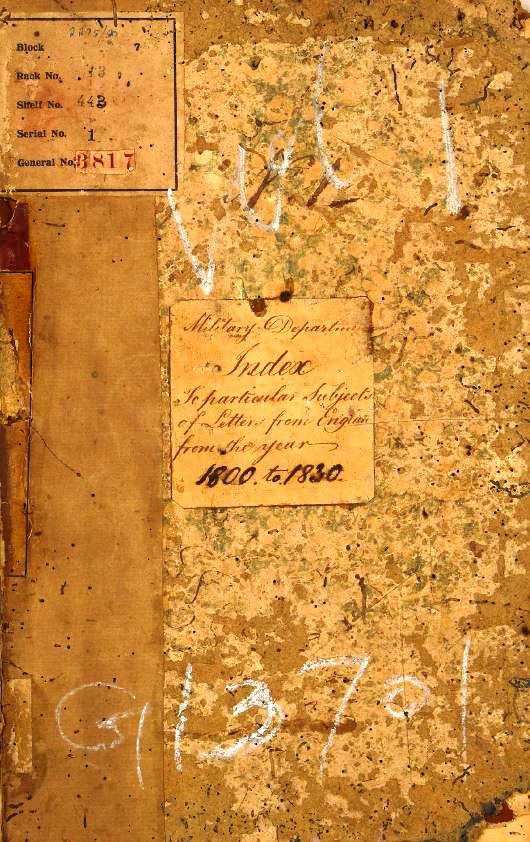 Block 7
Rack No. 13
Shelf No. 443
Serial No. 1
General No. 3817
Vol 1
Military Department
Index
To particular Subjects
of Letters from England
from the year
1800. to 1830.
G/13701